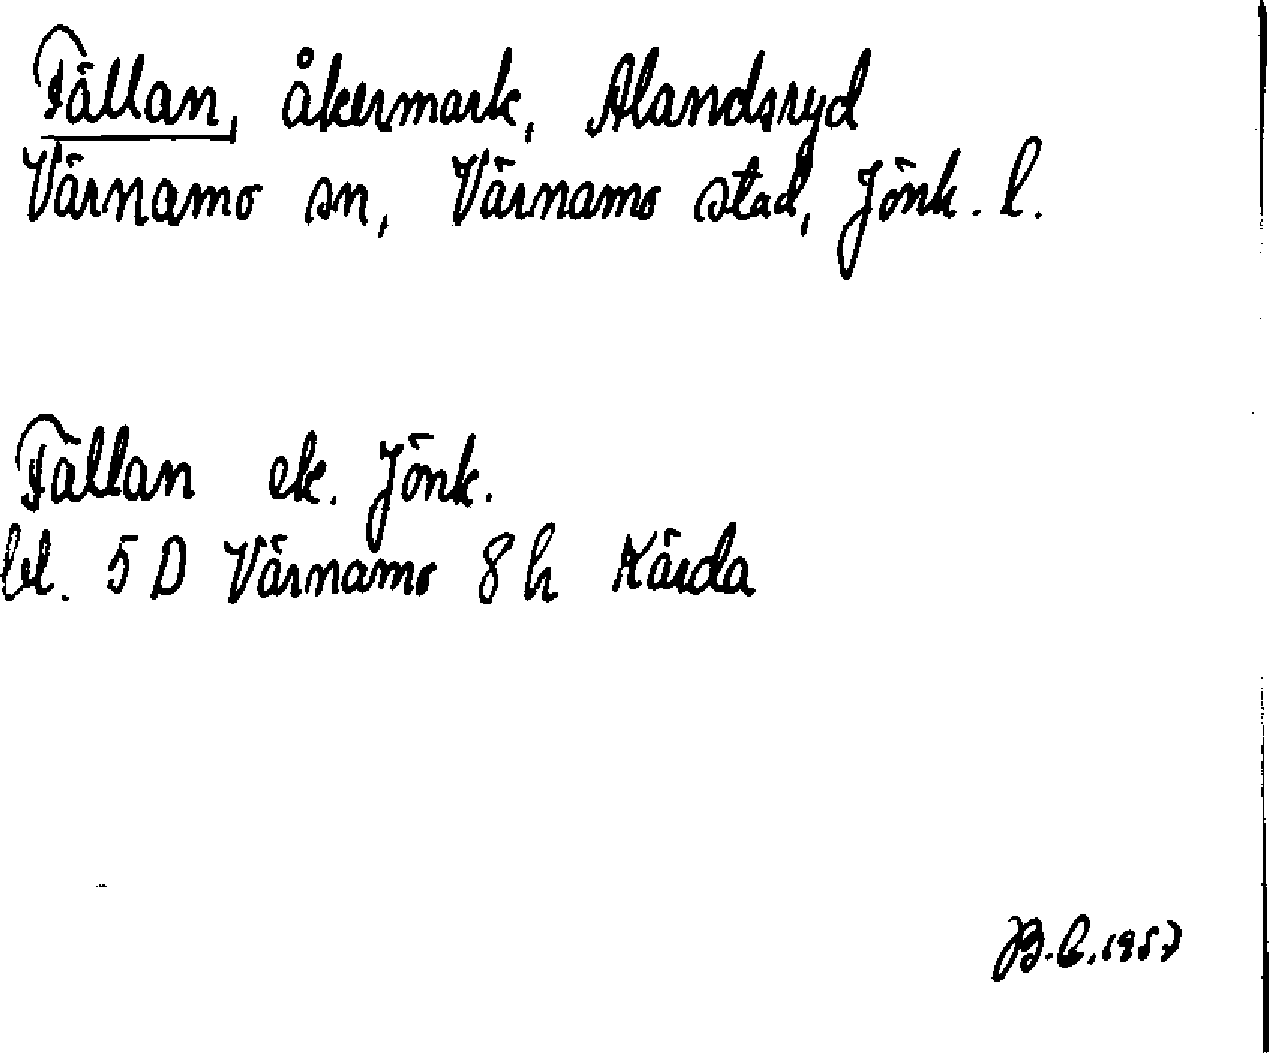 Fällan, åkermark, Alandsryd
Värnamo sn, Värnamo stad, Jönk. l.
Fällan ek. Jönk.
bl. 5 D Värnamo 8 h Kärda
B.C. 1957